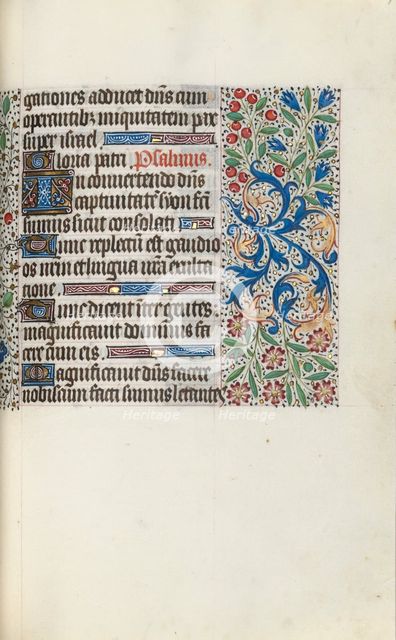 gationes adducet dn̄s cum
operantib; iniquitatem pax
super israel
Gloria patri Psalmus.
In convertendo dn̄s
captiuitatē syon fc̄i
sumus sicut consolati
Tunc repletū est gaudio
os nr̄m et lingua nr̄a exulta
tione
Tunc dicent īter gentes
magnificauit dominus fa
cere cum eis
Magnificauit dn̄s facere
nobiscum facti sumus letantes
Heritage Heritage